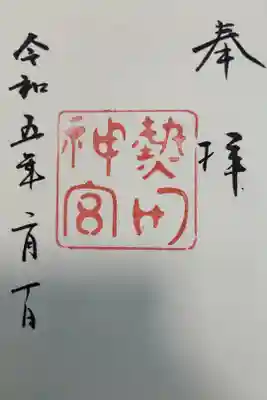 奉拝
熱田
神宮
令和五年二月日